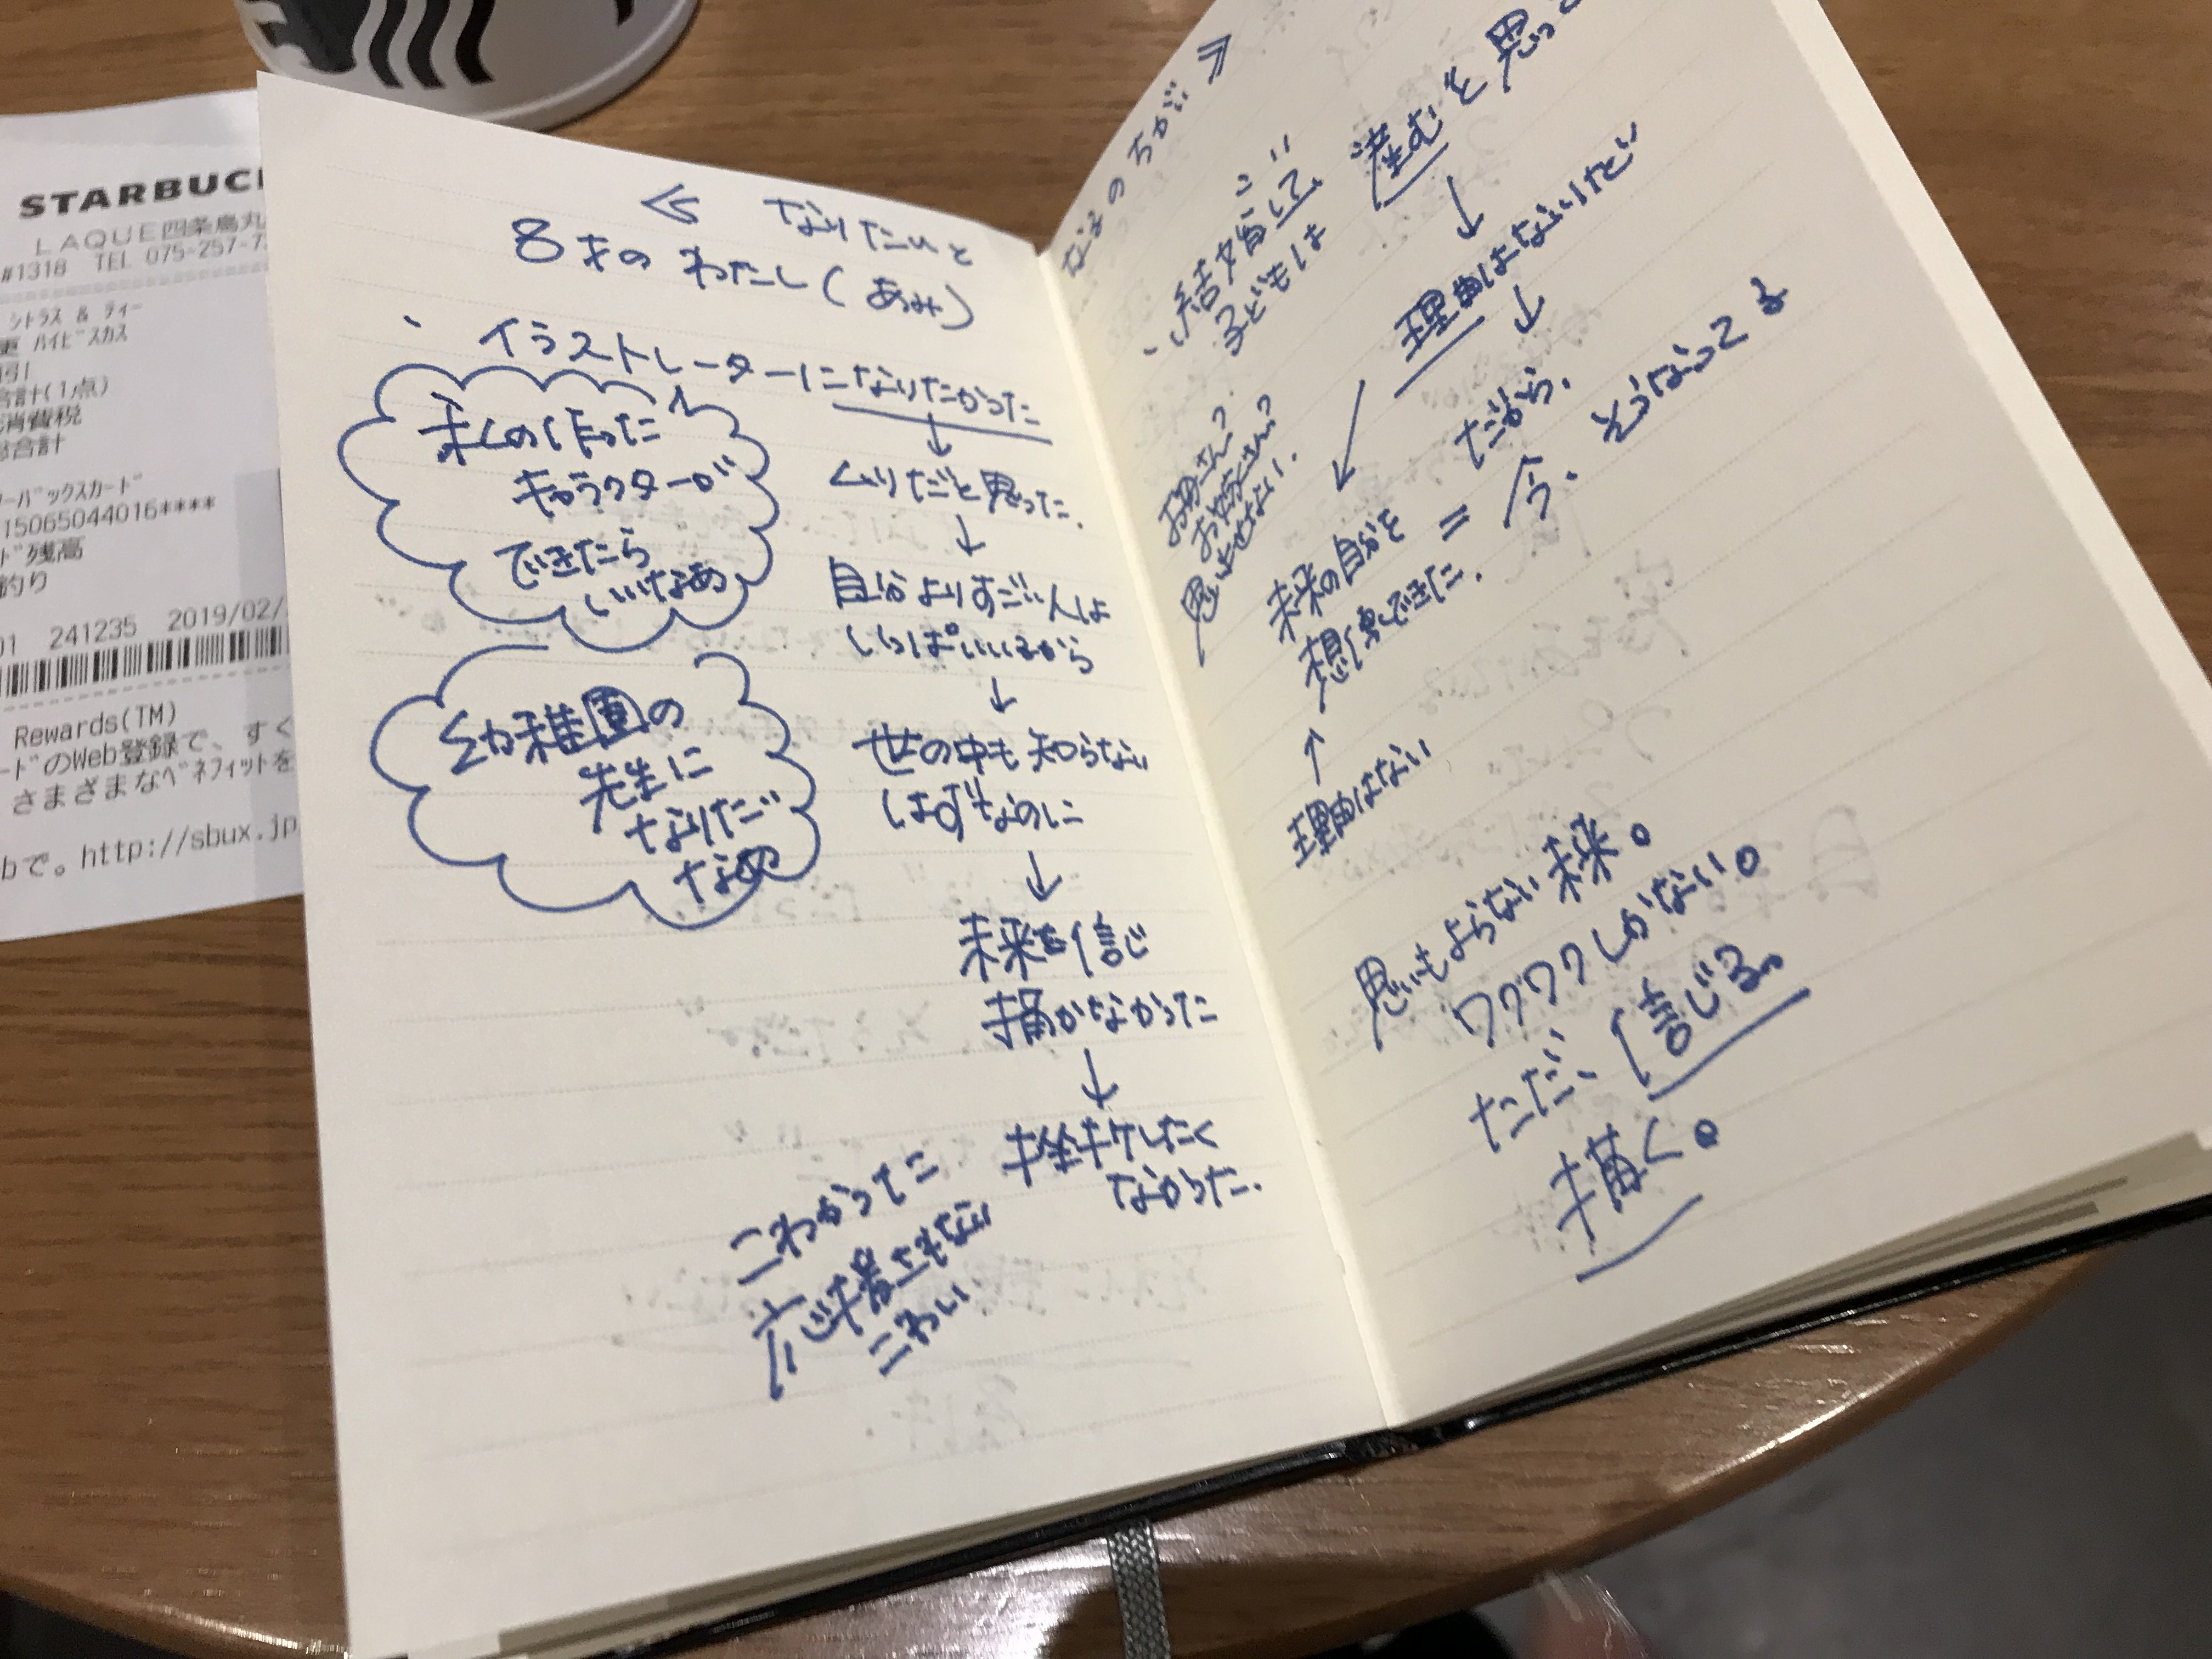 STARBUC
LAQUE四条烏丸
#1318 TEL 075-257-7
シトラス & ティー
更 ハイビスカス
割引
合計(1点)
消費税
総合計
ーバックスカード
15065044016****
ド残高
釣り
01 241235 2019/02/
Rewards(TM)
ードのWeb登録で、すぐ
さまざまなベネフィットを
bで。http://sbux.jp
≪ なりたいと
8才の わたし(あみ)
、イラストレーターになりたかった
私の作った
キャラクターが
できたら
いいなあ
↓
ムリだと思った.
↓
自分よりすごい人は
いっぱいいるから
↓
世の中も知らない
はずなのに
↓
未来を信じ
描かなかった
↓
挫折したく
なかった.
幼稚園の
先生に
なりたい
なぁ
こわかった
こわい
なるのちがい ≫
、結婚して
子どもは 産むと思っ
↓
理由はないけど
↓
だから.
お母さん?
お父さん?
思い出せない.
未来の自分を = 今、そうなってる
想像できた.
↑
理由はない
思いもよらない未来。
ワクワクしかない。
ただ、信じる。
描く。